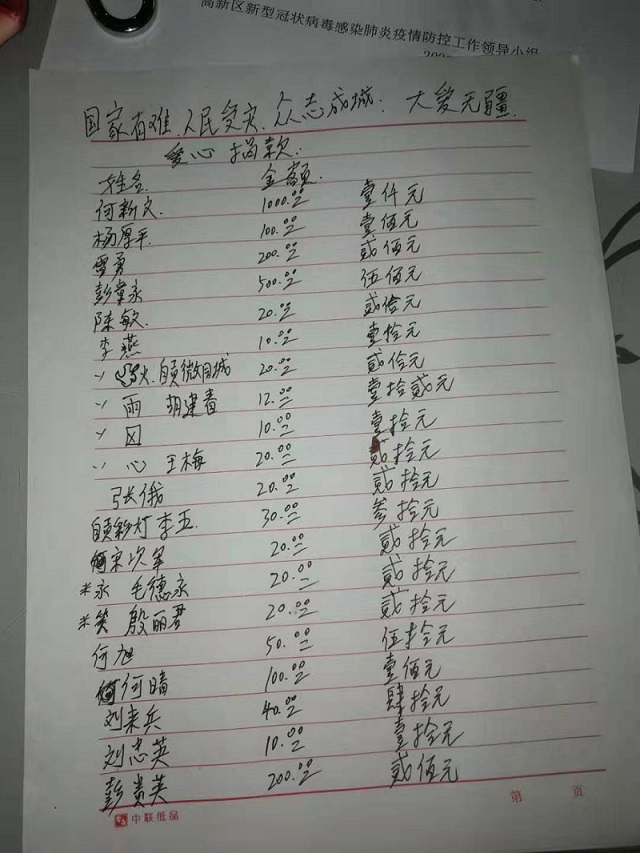 高新区新型冠状病毒感染肺炎疫情防控工作领导小组
国家有难.人民受灾.众志成城: 大爱无疆.
爱心捐款:
姓名 金额.
何新文. 1000.00 壹仟元
杨厚平. 100.00 壹佰元
雷勇 200.00 贰佰元
彭章永 500.00 伍佰元
陈敏. 20.00 贰拾元
李燕 10.00 壹拾元
火. 城 20.00 贰拾元
雨 胡建春 12.00 壹拾贰元
10.00 壹拾元
心 王梅 20.00 贰拾元
张俄 20.00 贰拾元
彩灯 李五. 30.00 叁拾元
宋次军 20.00 贰拾元
*永 毛德永 20.00 贰拾元
*笑 殷丽君 20.00 贰拾元
何旭 50.00 伍拾元
何晴 100.00 壹佰元
刘来兵 40.00 肆拾元
刘忠英 10.00 壹拾元
彭贵英 200.00 贰佰元
中联纸品 第 页